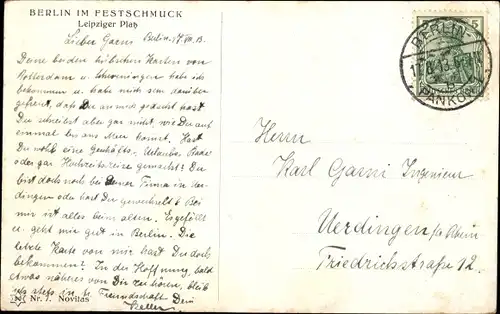 BERLIN IM FESTSCHMUCK
Leipziger Platz
Lieber Garni Berlin, 17. VII. 13.
Deine beiden hübschen Karten von
Rotterdam u. Scheveningen hab ich
bekommen u. habe mich sehr darüber
gefreut, daß Du an mich gedacht hast
Du schreibst aber gar nicht, wie Du auf
einmal bis ans Meer kamst. Hast
Du wohl eine Geschäfts-, Urlaubs-
oder gar Hochzeitsreise gemacht? Du
bist doch noch bei Firma in Uer-
dingen oder hast Du gewechselt? Bei
mir ist alles beim alten. Es gefällt
u. geht mir gut in Berlin. Die
letzte Karte von mir hast Du doch
bekommen? In der Hoffnung, bald
etwas näheres von Dir zu hören, bleib
ich stets in Freundschaft Dein
Keller.
Nr. 7. Novitas
5
BERLIN
PANKOW
Herrn
Karl Garni Ingenieur
Uerdingen a/Rhein
Friedrichstraße 12.